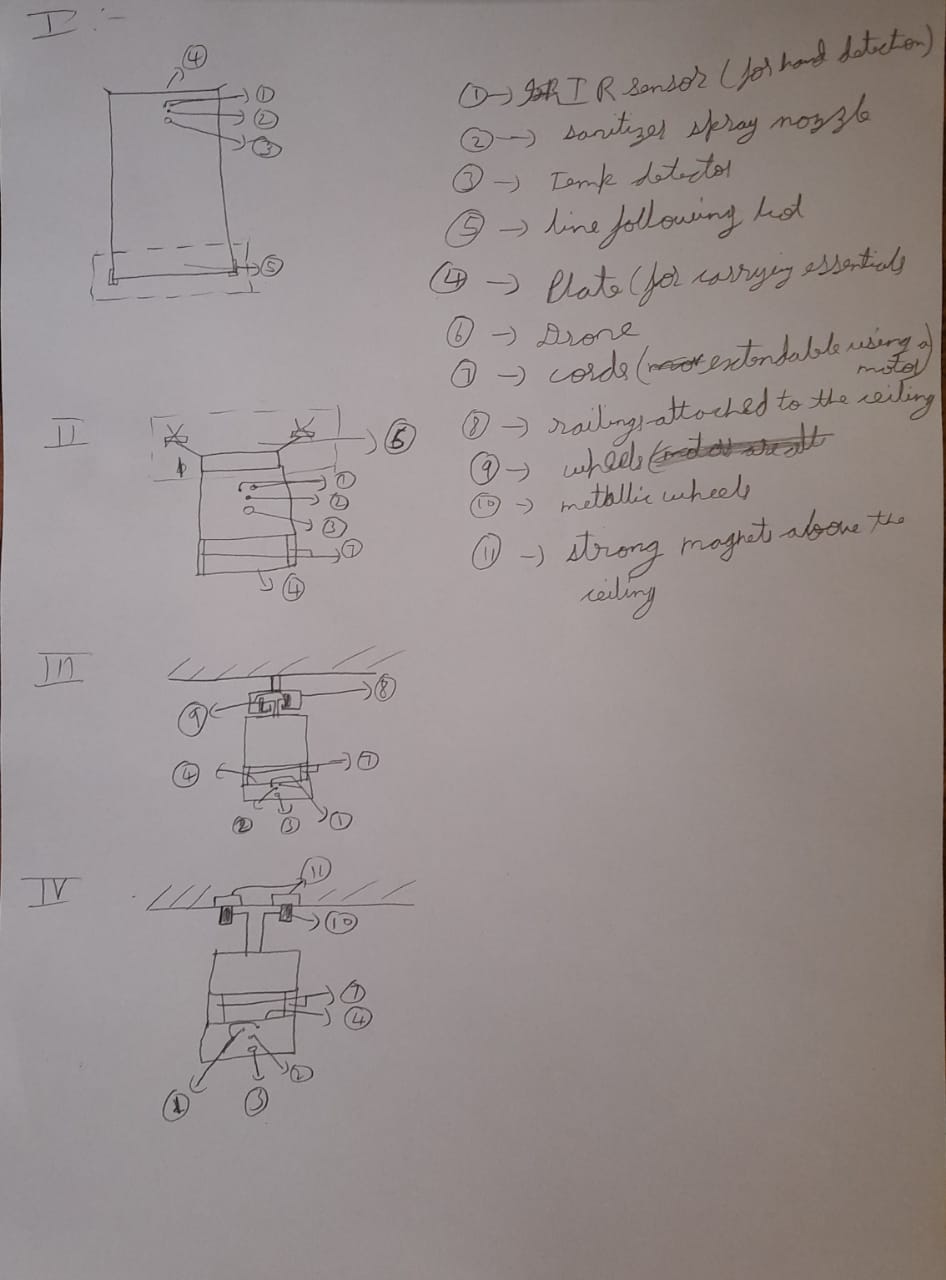 I :-
④
①
②
③
⑤
① → IR sensor (for hand detection)
② → sanitizer spray nozzle
③ → Temp detector
⑤ → line following bot
④ → Plate (for carrying essentials
⑥ → Drone
⑦ → cords (extendable using a
motor)
⑧ → railings attached to the ceiling
⑨ → wheels
⑩ → metallic wheels
⑪ → strong magnets above the
ceiling
II
⑥
①
②
③
⑦
④
III
⑧
⑨
④
⑦
②
③
①
IV
⑪
⑩
⑦
④
②
①
③